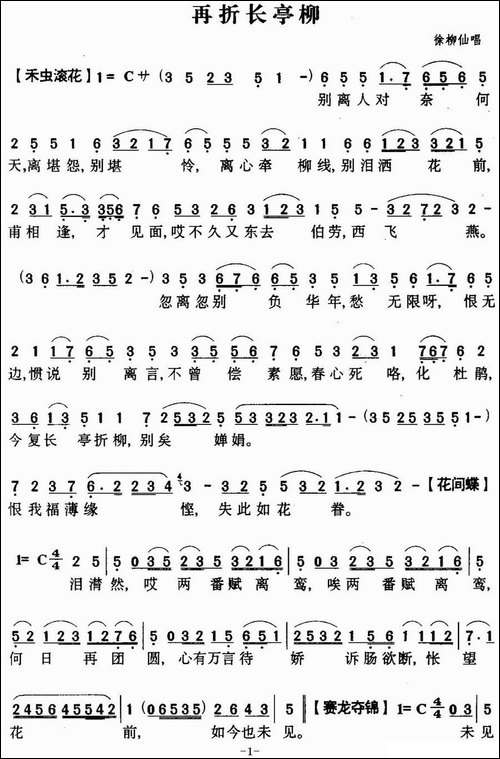 再折长亭柳
徐柳仙唱
【禾虫滚花】1=C サ (3 5 2 3 5 1 -) 6 5 5 1.7 6 5 6 5
别离人对奈何
2 5 5 1 6 3 2 1 7 6 5 5 5 3 2 1 1 6 6 1 2 3 3 2 1
天,离堪怨,别堪怜,离心牵柳线,别泪洒花前,
2 3 1 5.3 3 5 6 7 6 5 3 2 6 3 1 2 3 1 5 - 3 2 7 2 3 2 -
甫相逢,才见面,哎不久又东去伯劳,西飞燕。
(3 6 1.2 3 5 2 -) 3 5 6 7 6 6 5 1 3 5 6 5 6 1.7 6 5
忽离忽别负华年,愁无限呀,恨无
2 1 1 7 6 5 3 5 3 5 6 1 5 5 3 2 3 1 7 6 7 6 2
边,惯说别离言,不曾偿素愿,春心死咯,化杜鹃,
3 6 1 3 5 1 1 7 2 5 3 2 5 3 2 3 2 2.1 1 - (3 5 2 5 3 5 5 1)
今复长亭折柳,别矣婵娟。
7 2 3 7 6. 2 2 3 4 3 - 3 2 5 3 5 3 2 1.2 3 2 - 【花间蝶】
恨我福薄缘悭,失此如花眷。
1=C 4/4 2 5 | 5 0 3 5 2 3 5 1 | 5 0 3 5 2 3 5 1 |
泪潸然,哎两番赋离鸾,唉两番赋离鸾,
5 2 1 2 3 1 2 1 2 7 6 | 5 0 3 2 1 5 6 5 1 | 2 0 3 5 3 2 5 6 1 1 1 2 | 7. 6 5 1
何日再团圆,心有万言待娇诉肠欲断,怅望
2 4 5 6 4 5 5 4 2 | 1 (0 6 5 3 5) 2 0 6 4 3 | 5 ‖【赛龙夺锦】1=C 4/4 0 3 | 5
花前,如今也未见。未见
-1-